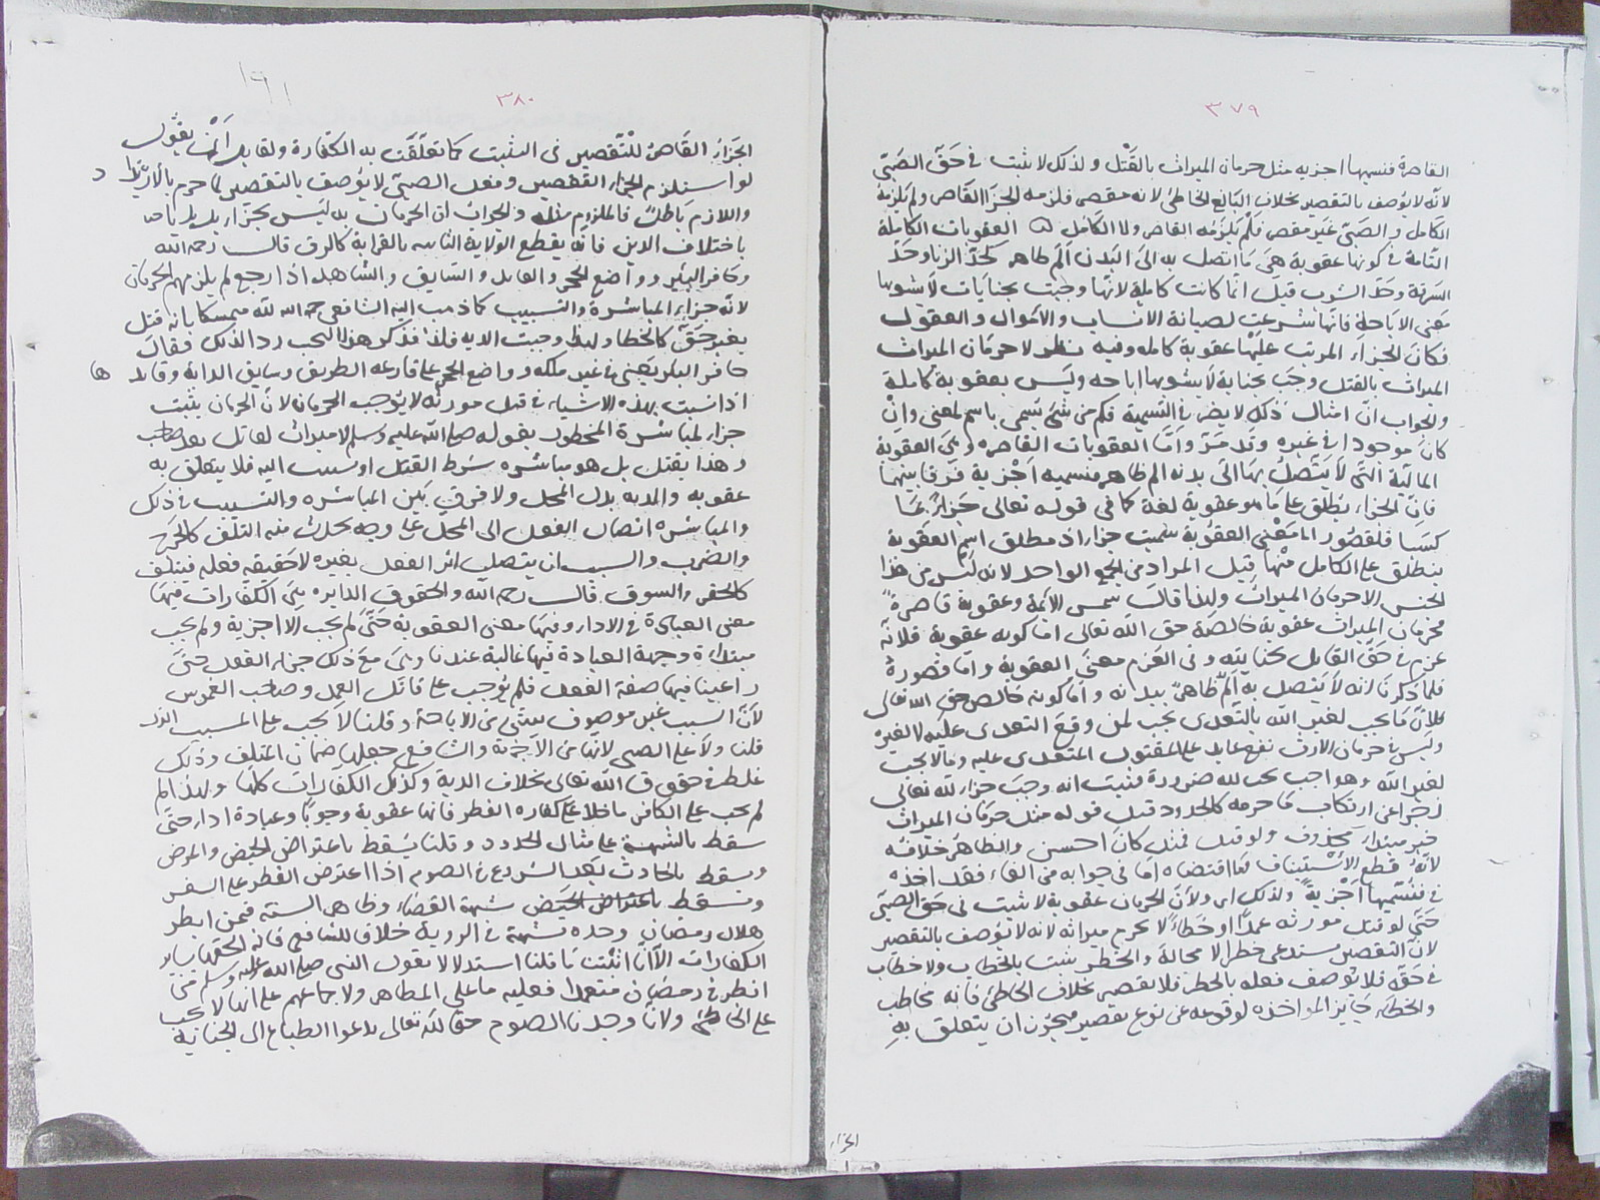 ٣٧٩
القاصرة فنسميها اجزيه مثل حرمان الميراث بالقتل ولذلك لا يثبت في حق الصبي
لأنه لا يوصف بالتقصير بخلاف البالغ الخاطئ لانه مقصر فلزمه الجزا القاصر ولم يلزمه
الكامل والصبي غير مقصر فلم يلزمه القاصر ولا الكامل العقوبات الكاملة
التامة في كونها عقوبة هي ما اتصل به الى البدن الم ظاهر كحد الزنا وحد
السرقة وحد الشرب قيل انما كانت كاملة لانها وجبت بجنايات لا يشوبها
معنى الاباحة فانها شرعت لصيانة الانساب والاموال والعقول
فكان الجزاء المرتب عليها عقوبة كامله وفيه نظر لا حرمان الميراث
الميراث بالقتل وجب بجناية لا يشوبها اباحه وليس بعقوبة كاملة
والجواب ان امثال ذلك لا يضر في التسمية فكم من شئ يسمى باسم لمعنى وان
كان موجودا في غيره وقد مر واما العقوبات القاصره وهي العقوبة
المالية التي لا يتصل بها الى بدنه الم ظاهر فنسميه اجزية فرقا بينهما
فان الجزاء يطلق على ما هو عقوبة لغة كما في قوله تعالى جزاء بما
كسبا فلقصور المعنى العقوبة سميت جزاء اذ مطلق اسم العقوبة
ينطلق على الكامل منها قيل المراد من الجمع الواحد لانه ليس من هذا
الجنس الا حرمان الميراث ولهذا قال شمس الائمة وعقوبة قاصرة
فحرمان الميراث عقوبة خالصة حق الله تعالى اما كونه عقوبة فلانه
غرم في حق القاتل بجنايته وفي الغرم معنى العقوبة واما قصوره
فلما ذكرنا لانه لا يتصل به الم ظاهر ببدنه واما كونه خالص حق الله تعالى
فلان ما يجب لغير الله بالتعدى يجب لمن وقع التعدى عليه لا لغيره
وليس في حرمان الارث نفع عايد على المقتول المتعدى عليه ومالا يجب
لغير الله وهو واجب يجب لله ضرورة فثبت انه وجب جزاء لله تعالى
زجرا عن ارتكاب ما حرمه كالحدود قيل قوله مثل حرمان الميراث
خبر مبتداء محذوف ولو قيل فمثل كان احسن والظاهر خلافه
لانه قطع الاستيناف لما اقتضاه اما في جوابه من الفاء فقد اخذه
في فنسميها اجزية ولذلك اى ولان الحرمان عقوبة لا يثبت في حق الصبي
حتى لو قتل مورثه عمدا او خطاء لا يحرم ميراثه لانه لا يوصف بالتقصير
لان التقصير يستدعى خطرا لا محالة والخطر يثبت بالخطاب ولا خطاب
في حقه فلا يوصف فعله بالحظر فلا تقصير بخلاف الخاطئ فانه مخاطب
والخطاء جايز المواخذه لوقوعه عن نوع تقصير فيجوز ان يتعلق به
الجزاء
٣٨٠
الجزاء القاصر للتقصير في التثبت كما تعلقت به الكفارة ولقايل ان يقول
لو استلزم الجزاء التقصير وفعل الصبي لا يوصف بالتقصير لما حرم بالارتداد
واللازم باطل فالملزوم مثله والجواب ان الحرمان به ليس بجزاء بل
باختلاف الدين فانه يقطع الولاية الثابتة بالقرابة كالرق قال رحمه الله
وحافر البئر وواضع الحجر والقايد والسايق والشاهد اذا رجع لم يلزمهم الحرمان
لانه جزاء المباشرة والتسبيب كما ذهب اليه الشافعي رحمه الله متمسكا بانه قتل
بغير حق كالخطا ولهذا وجبت الديه فلذا فذكر هذا البحث ردا لذلك فقال
حافر البئر يعني في غير ملكه وواضع الحجر على قارعه الطريق وسايق الدابة وقايد
ها
اذا تسبب بهذه الاشياء في قتل مورثه لا يوجب الحرمان لان الحرمان يثبت
جزاء لمباشرة المحظور بقوله صلى الله عليه وسلم لا ميراث لقاتل بعد صاحب
وهذا يقتل بل هو مباشره شرط القتل او تسبب اليه فلا يتعلق به
عقوبه والديه بدل المحل ولا فرق بين المباشره والتسبب في ذلك
والمباشره اتصال الفعل الى المحل على وجه يحدث منه التلف كالجرح
والضرب والتسبب ان يتصل اثر الفعل بغيره لا حقيقه فعله فيتلف
كالحفر والسوق قال رحمه الله والحقوق الدايره هي الكفارات فيها
معنى العبادة في الاداء وفيها معنى العقوبة حتى لم يجب الا اجزية ولم يجب
مبتداءة وجهة العبادة فيها غالبة عندنا وهي مع ذلك جزاء الفعل حتى
راعينا فيها صفة الفعل فلم نوجب على قاتل العمد وصاحب الغموس
لان السبب غير موصوف بشئ من الاباحة وقلنا لا يجب على المسبب الذى
قلنا ولا على الصبي لانها من الاجزية والشافعي جعلها ضمان المتلف وذلك
غلط في حقوق الله تعالى بخلاف الدية وكذلك الكفارات كلها ولهذا لم
لم يجب على الكافر ما خلا كفاره الفطر فانها عقوبة وجوبا وعبادة اداء حتى
سقط بالشبهة على مثال الحدود وقلنا يسقط باعتراض الحيض والمرض
ويسقط بالحادث بعد الشروع في الصوم اذا اعترض الفطر على السفر
ويسقط باعتراض الحيض شبهة القضاء وظاهر السنه فيمن ابصر
هلال رمضان وحده شبهة في الروية خلافا للشافعي فانه الحقها بساير
الكفارات الا انا اثبتنا ما قلنا استدلالا بقول النبي صلى الله عليه وسلم من
افطر في رمضان متعمدا فعليه ما على المظاهر ولاجماعهم على انها لا تجب
على الخاطئ ولانا وجدنا الصوم حقا لله تعالى تدعوا الطباع الى الجناية